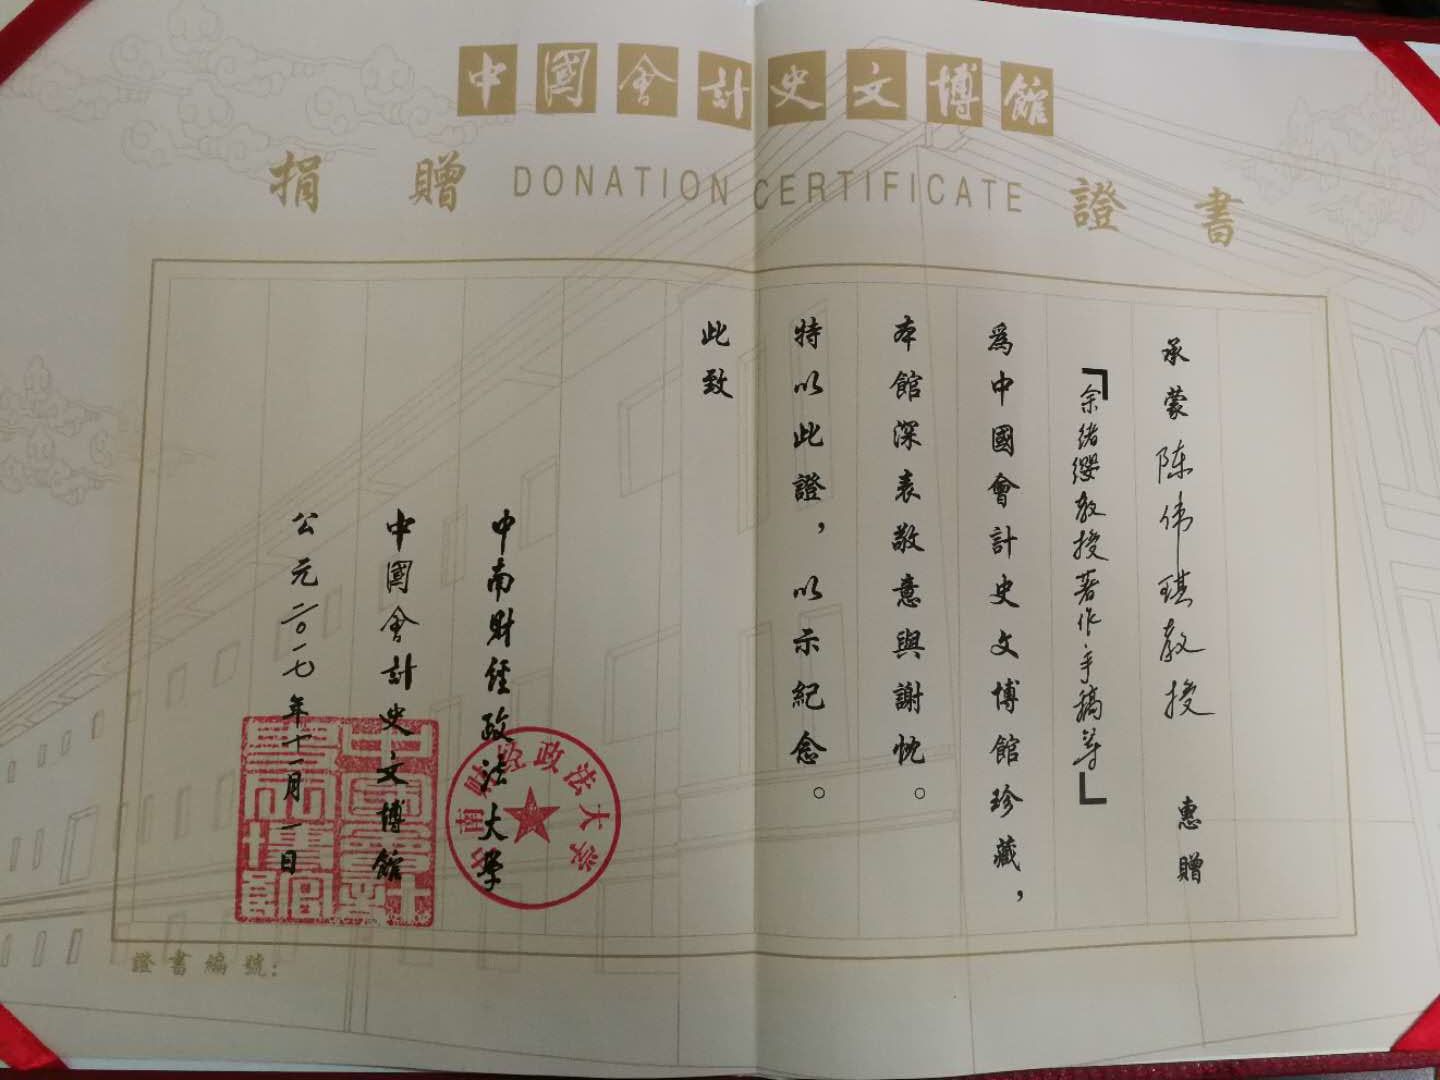 中國會計史文博館
捐贈 DONATION CERTIFICATE 證書
承蒙陈伟琪教授 惠贈
「余绪缨教授著作手稿等」
爲中國會計史文博館珍藏，
本館深表敬意與謝忱。
特以此證，以示紀念。
此致
中南財經政法大學
中國會計史文博館
公元二〇一七年十一月一日
中南财经政法大学
中國會計史文博館
證書編號: